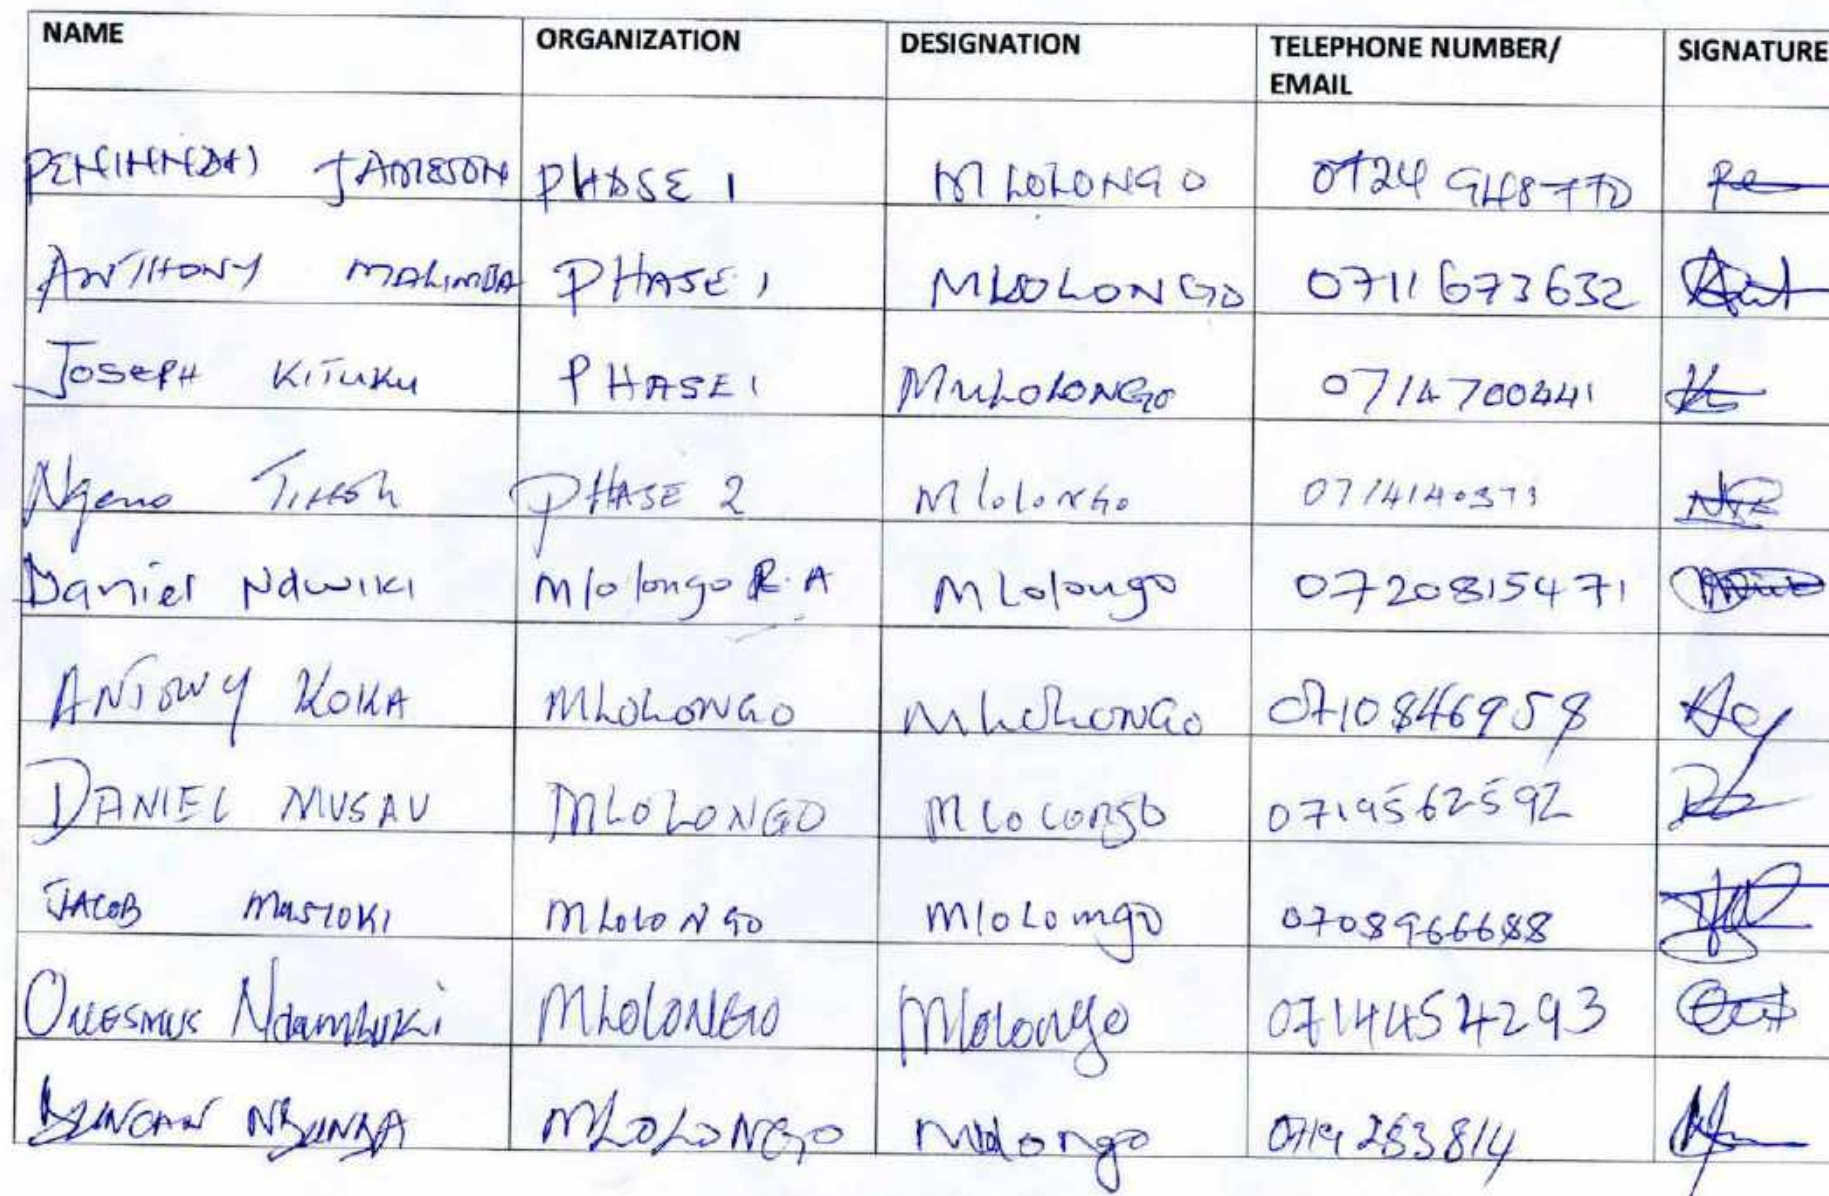 NAME ORGANIZATION DESIGNATION TELEPHONE NUMBER/ SIGNATURE
EMAIL
PENINNAH JAMESON PHASE 1 MLOLONGO 0724 948770
ANTHONY MALIMBA PHASE 1 MLOLONGO 0711673632
JOSEPH KITUKU PHASE 1 MULOLONGO
Ngeno PHASE 2 Mlolongo
Daniel Ndwiki Mlolongo R.A Mlolongo 0720815471
ANTONY KOKA MLOLONGO MLOLONGO 0710846958
DANIEL MUSAU MLOLONGO MLOLONGO 0719562592
JACOB MUSYOKI MLOLONGO Mlolomgo 0708966688
ONESMUS Ndambuki MLOLONGO Mlolongo 0714454293
DUNCAN MLOLONGO Mlolongo 0719283814